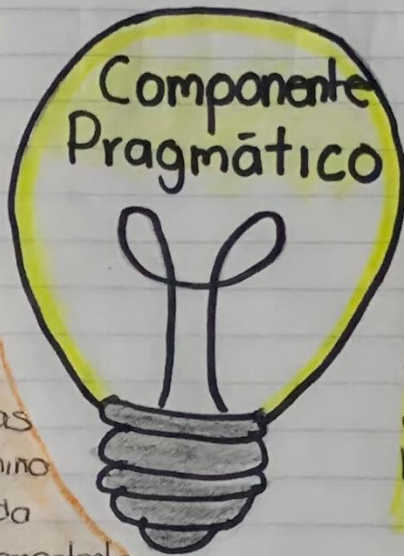 Componente
Pragmático
as
da